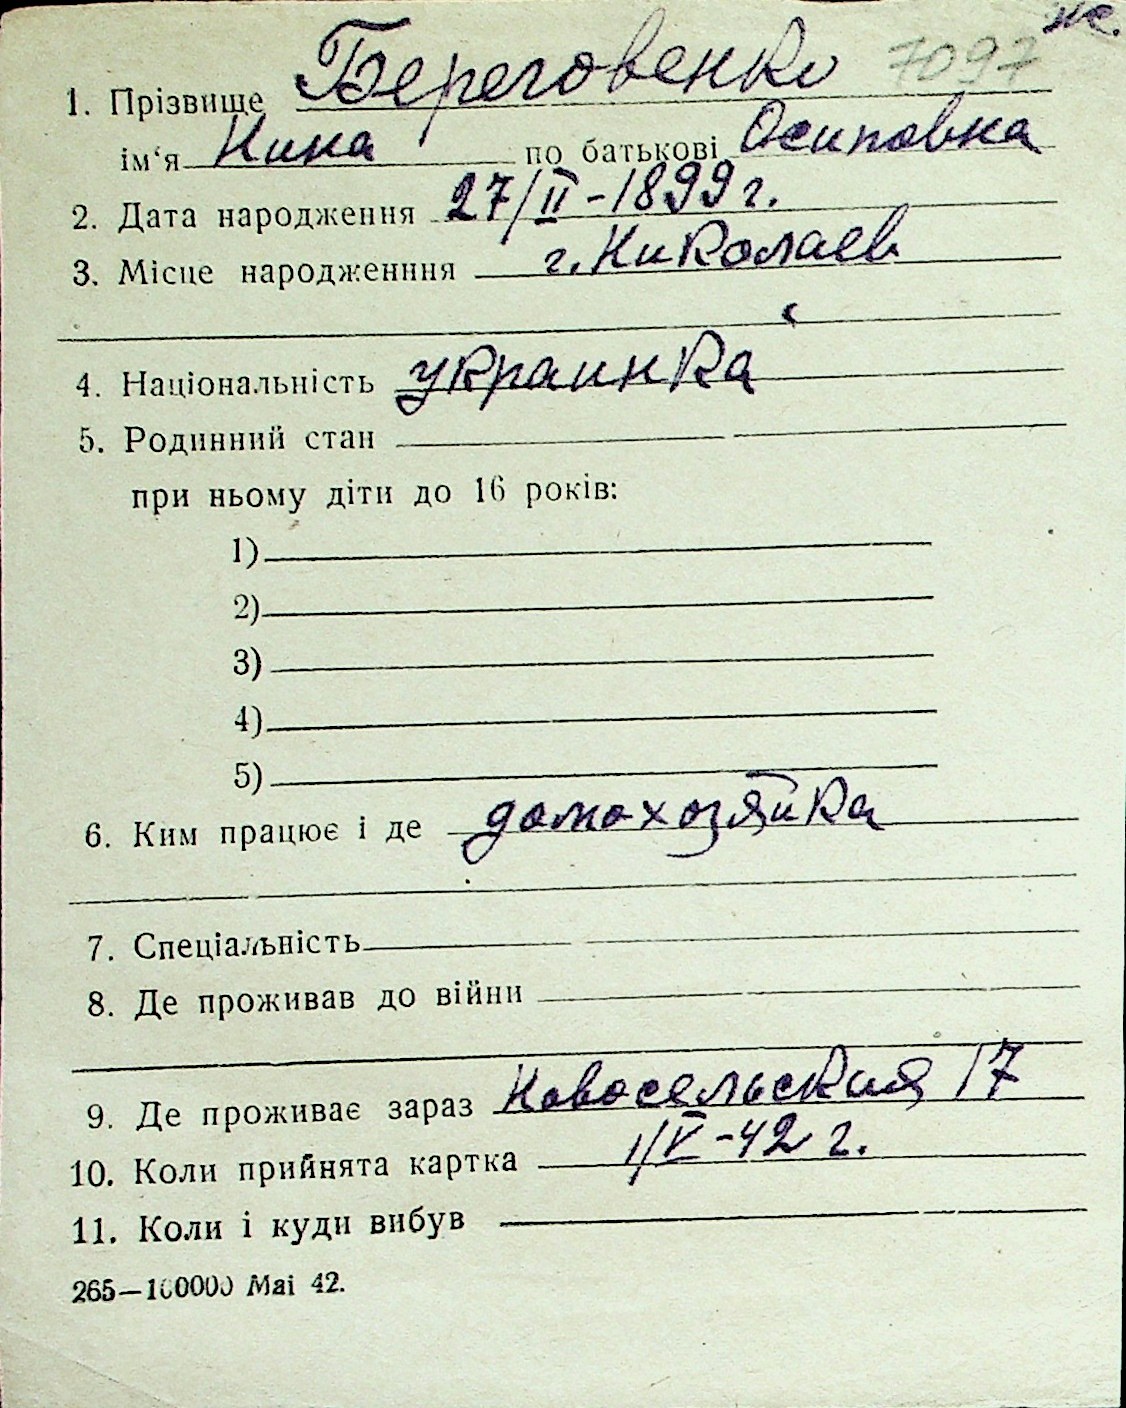 же.
7097
1. Прізвище Береговенко
ім‘я Нина по батькові Осиповна
2. Дата народження 27/II-1899 г.
3. Місце народженння г. Николаев
4. Національність украинка
5. Родинний стан
при ньому діти до 16 років:
1)
2)
3)
4)
5)
6. Ким працює і де домохозяйка
7. Спеціальність
8. Де проживав до війни
9. Де проживає зараз Новосельская 17
10. Коли прийнята картка 1/V-42 г.
11. Коли і куди вибув
265—100000 Mai 42.